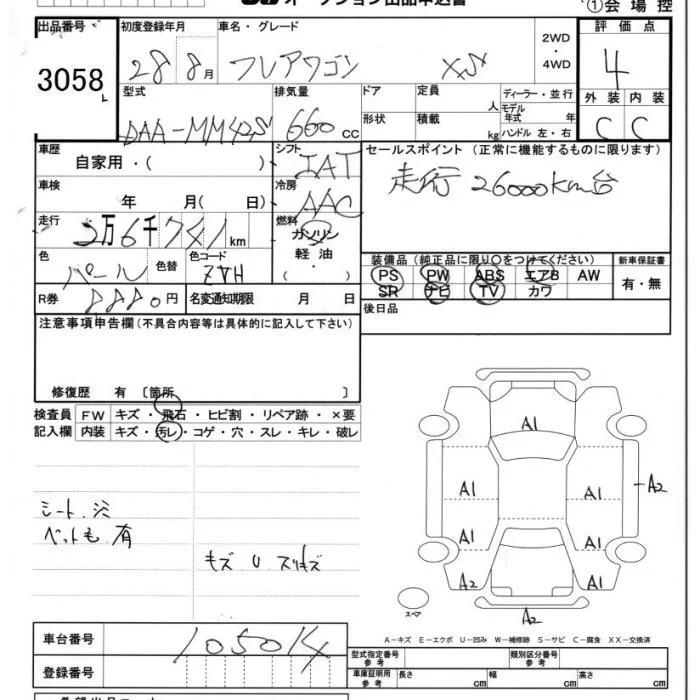 オークション出品申込書
①会場控
出品番号 初度登録年月 車名・グレード 評価点
3058 28 8月 フレアワゴン XS 2WD・4WD 4
型式 排気量 ドア 定員 人 ディーラー・並行 外装 内装
DAA-MM42S 660cc 形状 積載 kg モデル年式 年 ハンドル 左・右 C C
車歴 自家用・( ) シフト IAT セールスポイント (正常に機能するものに限ります)
車検 年 月( 日) 冷房 AAC 走行26000km台
走行 2万6千741km 燃料 ガソリン・軽油・( )
色 パール 色替 色コード ZVH
装備品 (純正品に限り○をつけてください) 新車保証書
PS PW ABS エアB AW 有・無
SR ナビ TV カワ
R券 円 名変通知期限 月 日
後日品
注意事項申告欄(不具合内容等は具体的に記入して下さい)
修復歴 有 〔箇所 〕
検査員 FW キズ・飛石・ヒビ割・リペア跡・×要
記入欄 内装 キズ・汚レ・コゲ・穴・スレ・キレ・破レ
シート.シミ
ペットも有
キズ U スリキズ
A1
A1 A1 A2
A1 A1
A2 A1
A2
スペア
A-キズ E-エクボ U-凹み W-補修跡 S-サビ C-腐食 XX-交換済
車台番号 105014
登録番号
型式指定番号 参考 類別区分番号 参考
車庫証明用 参考 長さ cm 幅 cm 高さ cm